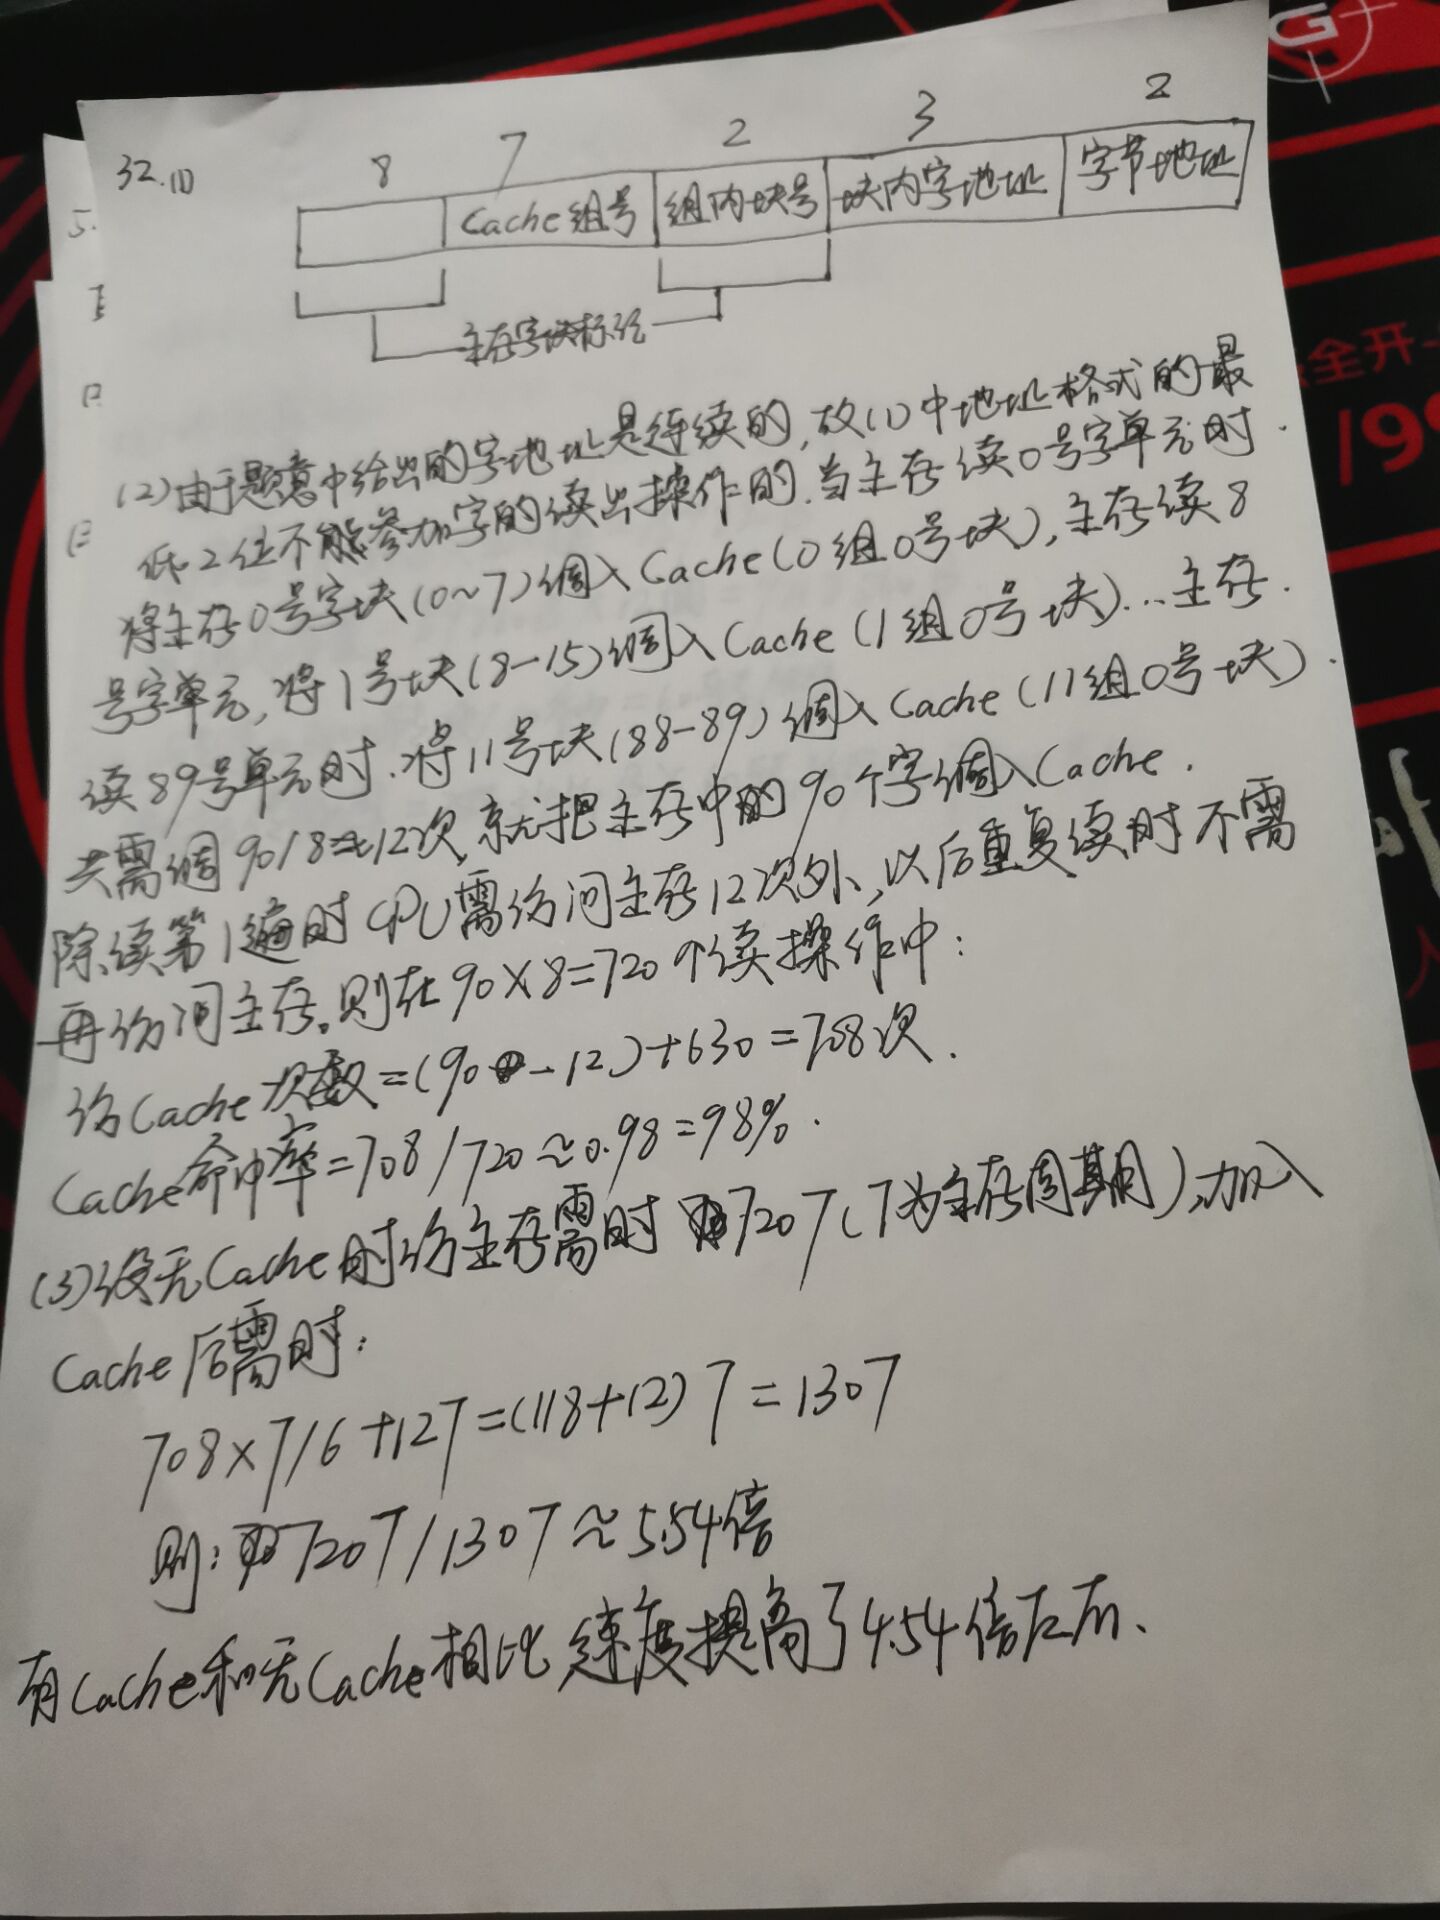 32.(1)
8 7 2 3 2
Cache组号 组内块号 块内字地址 字节地址
主存字块标记
(2)由于题意中给出的字地址是连续的,故(1)中地址格式的最
低2位不能参加字的读出操作的.当主存读0号字单元时.
将主存0号字块(0~7)调入Cache(0组0号块),主存读8
号字单元,将1号块(8-15)调入Cache(1组0号块)...主存.
读89号单元时.将11号块(88-89)调入Cache(11组0号块).
共需调90/8≈12次,就把主存中的90个字调入Cache.
除读第1遍时CPU需访问主存12次外,以后重复读时不需
再访问主存。则在90×8=720个读操作中:
访Cache次数=(90-12)+630=708次.
Cache命中率=708/720≈0.98=98%.
(3)设无Cache时访主存需时720T(T为主存周期),加入
Cache后需时:
708×T/6+12T=(118+12)T=130T
则:720T/130T≈5.54倍
有Cache和无Cache相比速度提高了4.54倍左右、
G
全开
199
5.